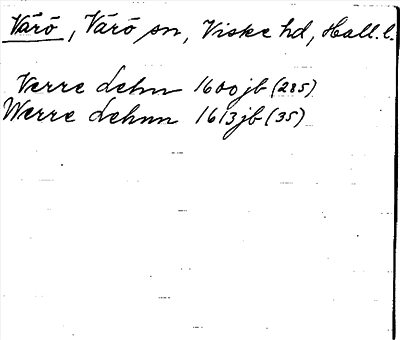 Värö, Värö sn, Viske hd, Hall. l.
Verre Lehn 1600 jb (285)
Werre Lehnn 1613 jb (35)